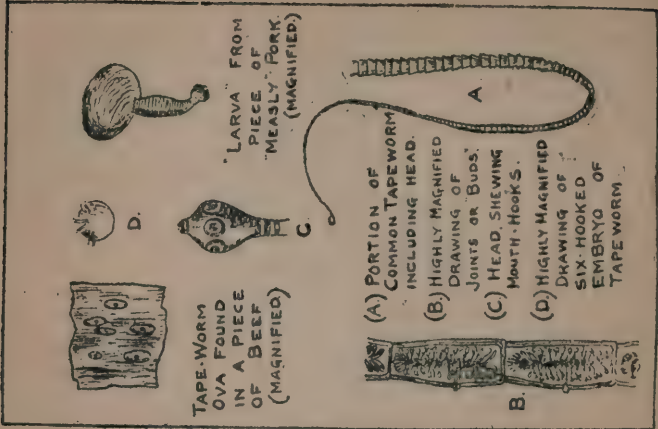 TAPE-WORM
OVA FOUND
IN A PIECE
OF BEEF
(MAGNIFIED)
D.
"LARVA" FROM
PIECE OF
"MEASLY" PORK.
(MAGNIFIED.)
C
A
(A) PORTION OF
COMMON TAPEWORM
INCLUDING HEAD.
(B.) HIGHLY MAGNIFIED
DRAWING OF
JOINTS OR "BUDS".
(C) HEAD, SHEWING
MOUTH-HOOKS.
(D) HIGHLY MAGNIFIED
DRAWING OF
SIX-HOOKED
EMBRYO OF
TAPEWORM
B.